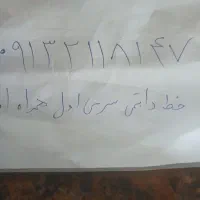 ۰۹۱۳۲۱۱۸۱۴۷
خط دائمی سری اول همراه